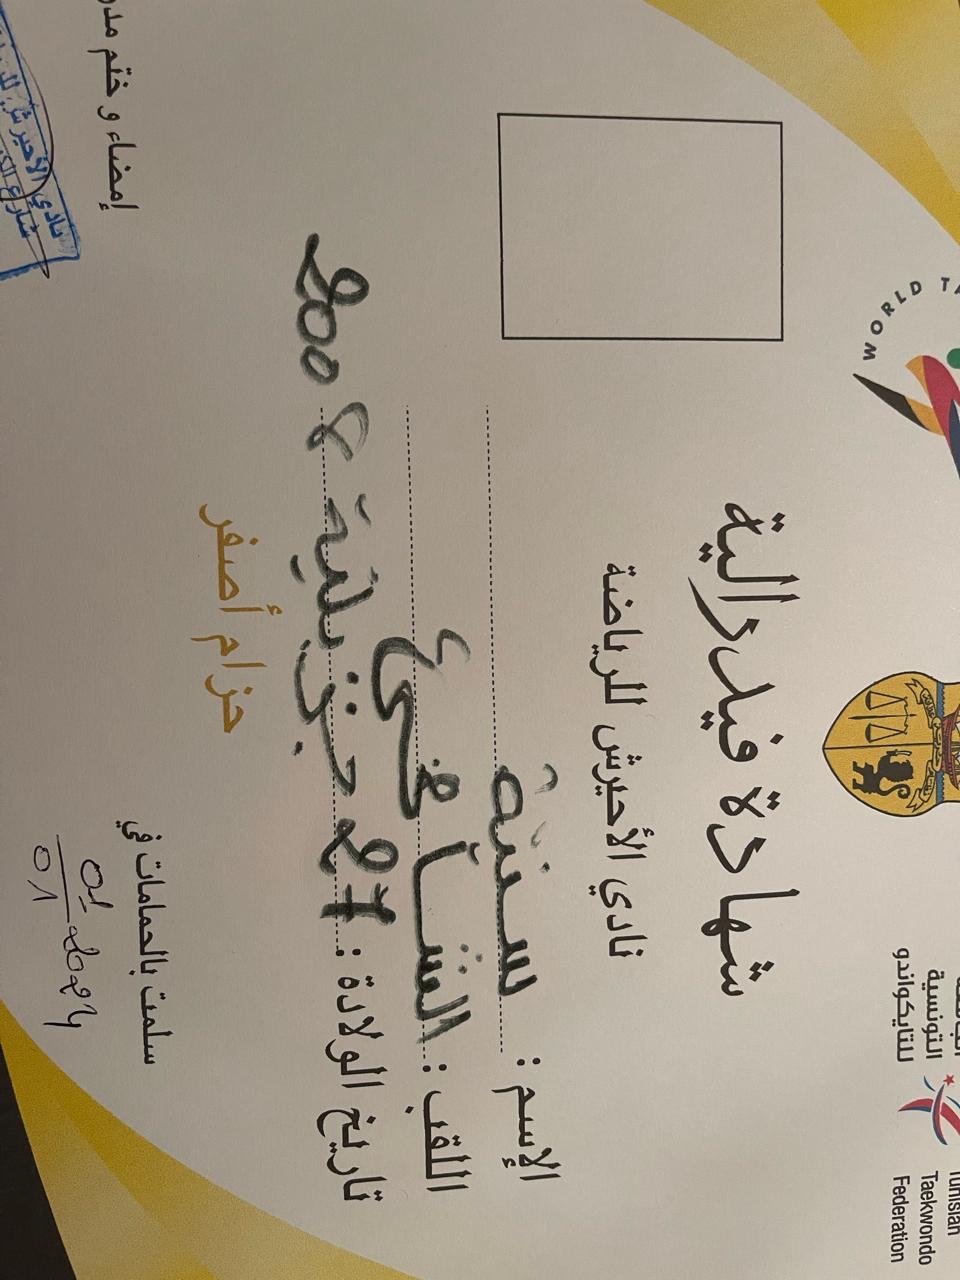 WORLD TA
الجامعة
التونسية
للتايكواندو
Tunisian
Taekwondo
Federation
شهادة فيدرالية
نادي الأحيرش للرياضة
الإسم : سنية
اللقب : الشافعي
تاريخ الولادة : 27 جويلية 2008
حزام أصفر
سلمت بالحمامات في
إمضاء و ختم مد
نادي الأحيرش للرياضة
شارع